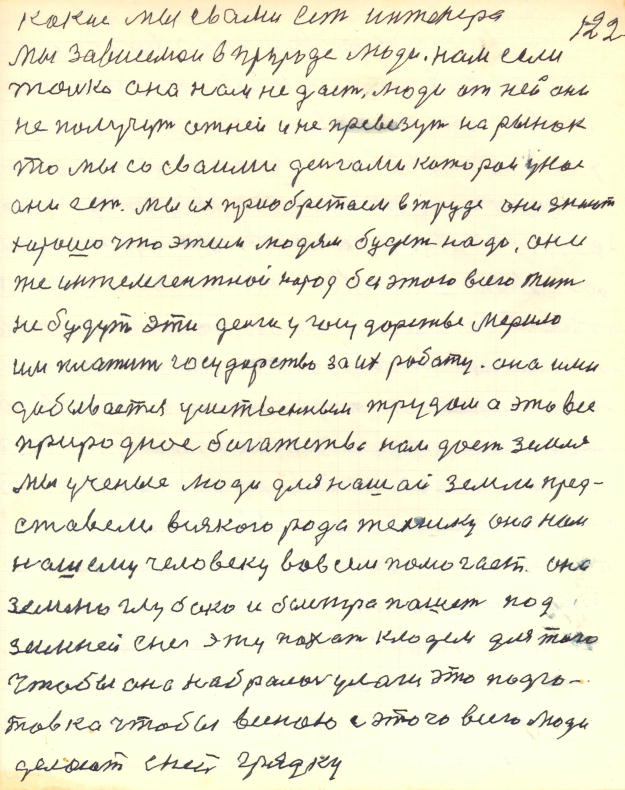 какие мы свами ест интенера 122
мы зависемои в природе люди. нам если
толко она нам не дает, люди от ней они
не получут отней и не превезут на рынок
то мы со своими денгами которои у нас
они ест. мы их приобретаем в труде они знают
хорошо что этим людям будет надо, они
же интелегентной народ без этого всего жит
не будут эти денги у государстве мерило
им платит государство за их работу. она ими
добывается умственным трудом а это все
природное богатство нам дает земля
мы ученые люди для нашой земли пред-
ставели всякого рода технику она нам
нашему человеку вовсем помогает. она
землю глубоко и быстра пашет под
зимней снег эту пахат кладем для того
чтобы она набралос улаги это подго-
товка чтобы весною с этого всего люди
делают с ней грядку